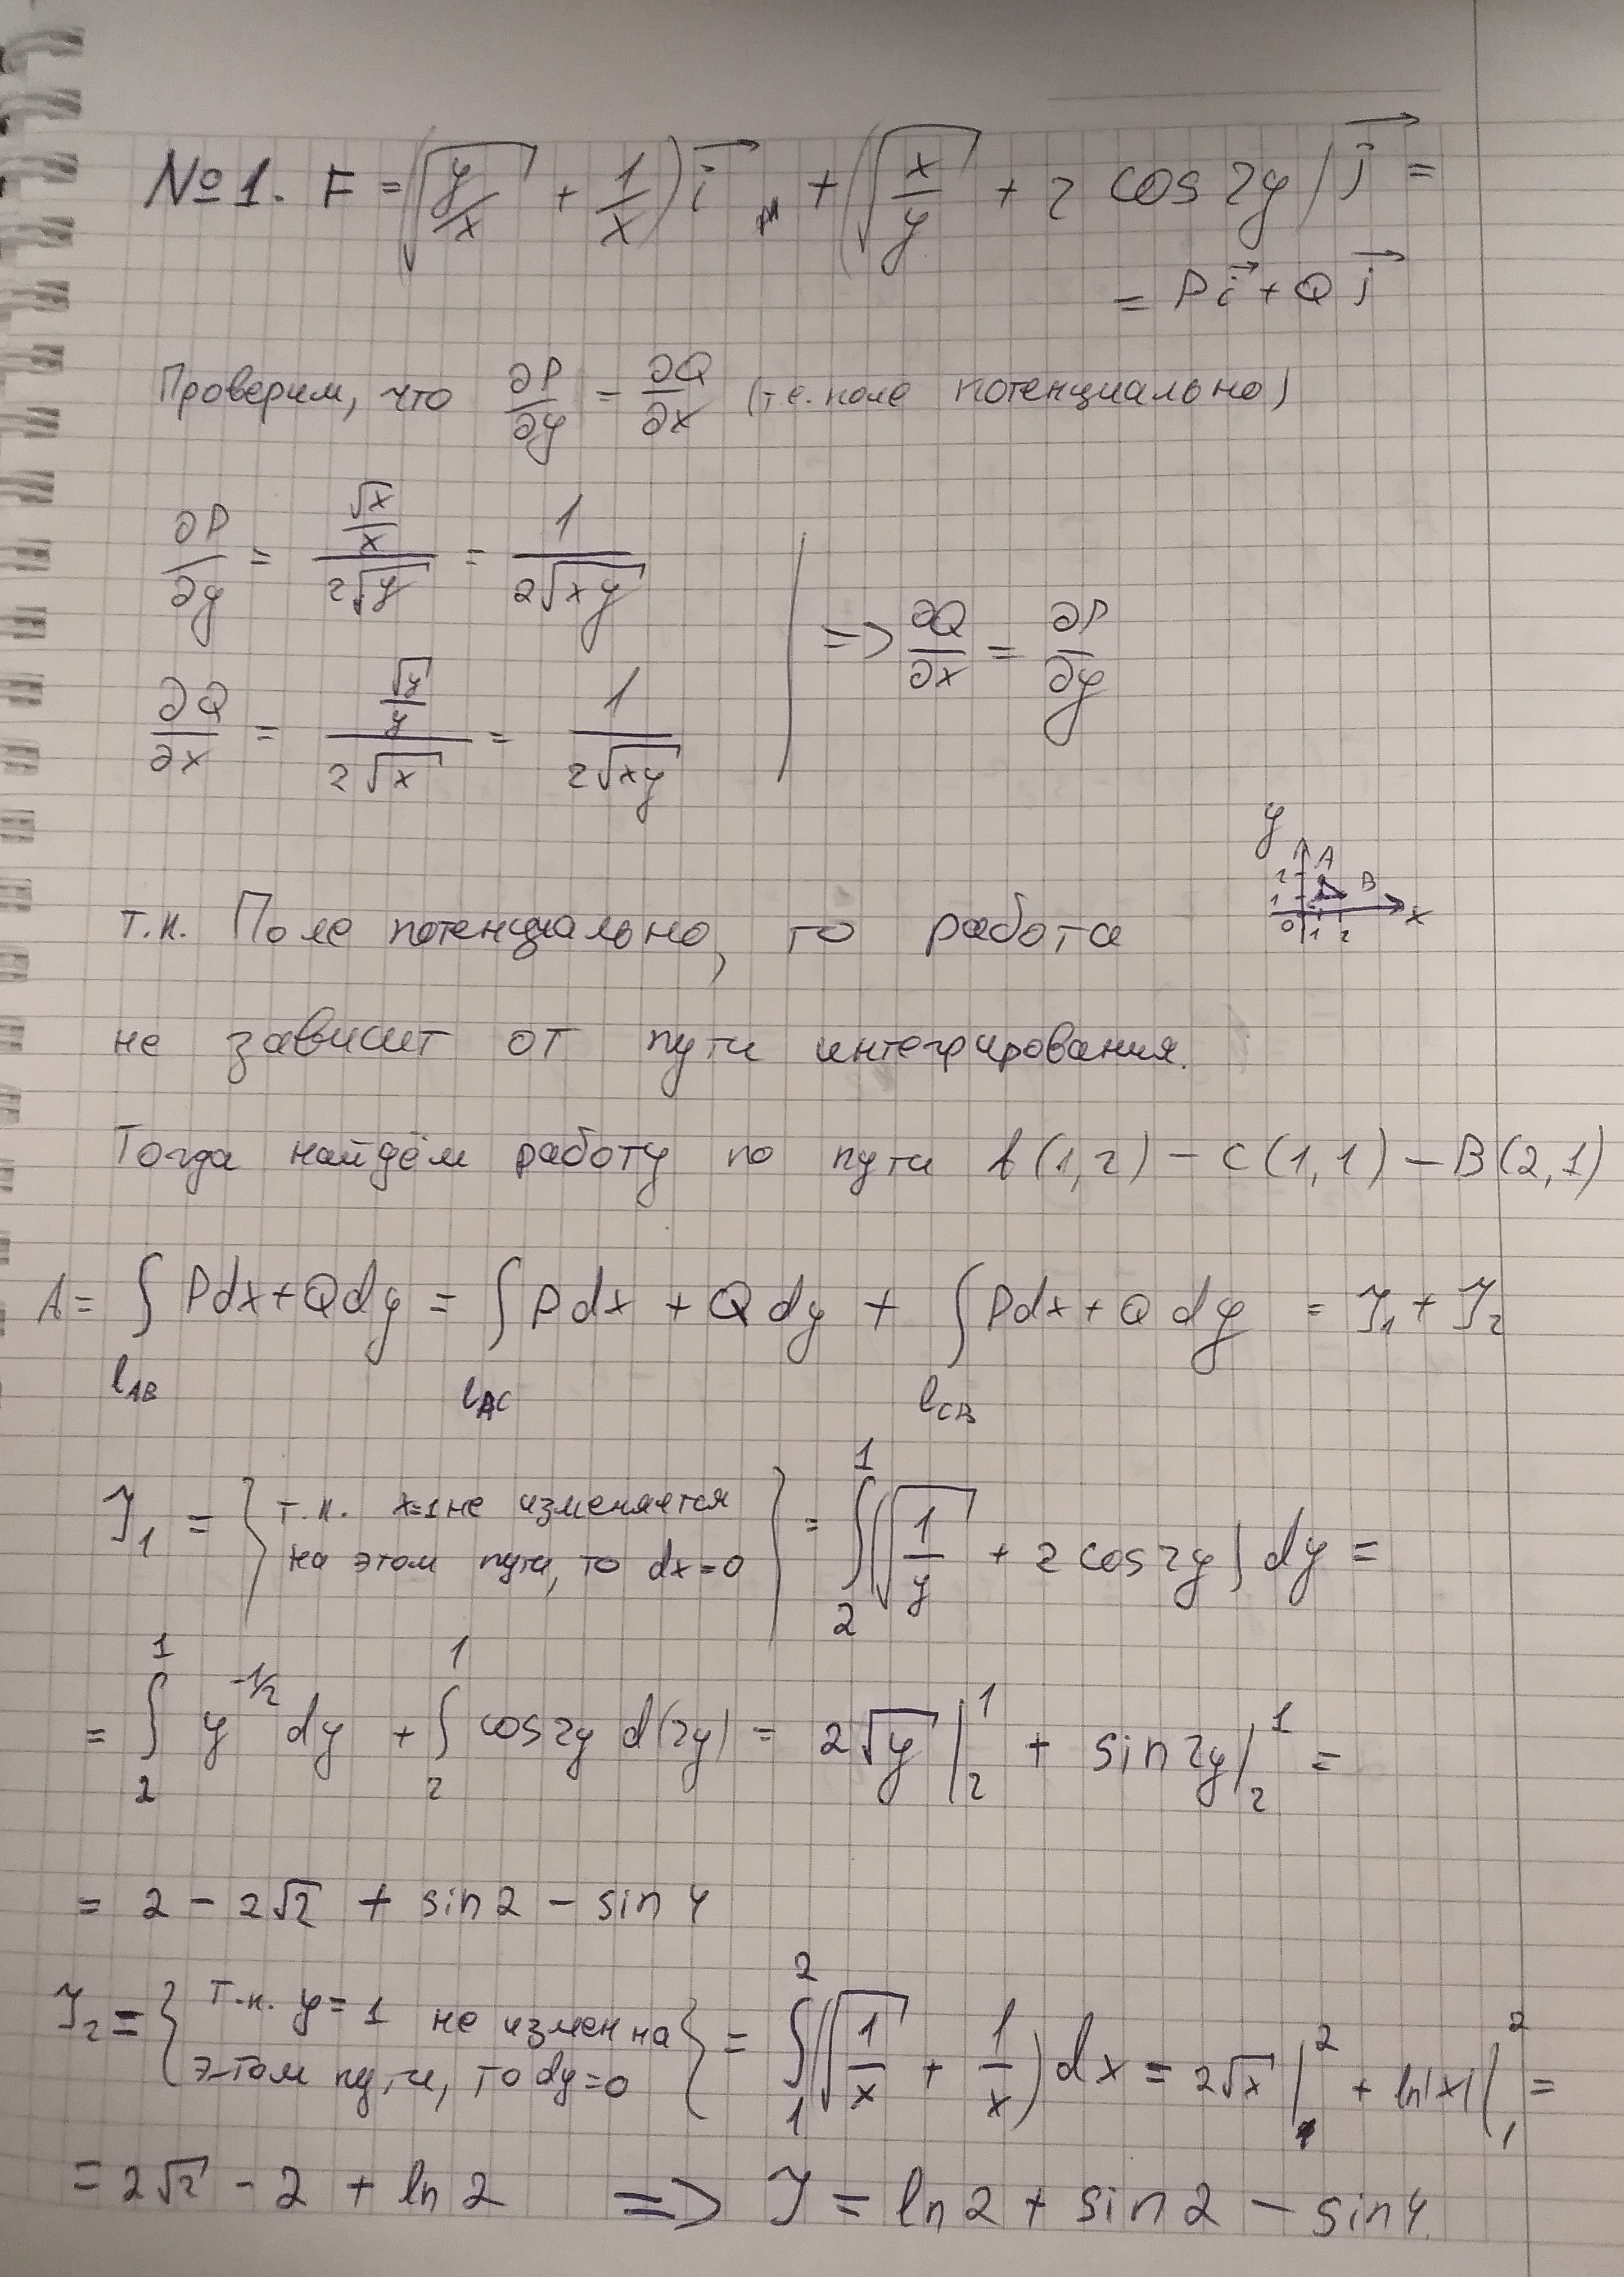 №1. F = (√(y/x) + 1/x) i⃗ + (√(x/y) + 2 cos 2y) j⃗ =
= P i⃗ + Q j⃗
Проверим, что ∂P/∂y = ∂Q/∂x (т.е. поле потенциально)
∂P/∂y = (√x/x)/(2√y) = 1/(2√(xy))
=> ∂Q/∂x = ∂P/∂y
∂Q/∂x = (√y/y)/(2√x) = 1/(2√(xy))
y A 2 B 1 0 1 2 x
т.к. Поле потенциально, то работа
не зависит от пути интегрирования.
Тогда найдём работу по пути A(1,2) – C(1,1) – B(2,1)
A = ∫ Pdx + Qdy = ∫ Pdx + Qdy + ∫ Pdx + Qdy = J₁ + J₂
l_AB l_AC l_CB
J₁ = {т.к. x=1 не изменяется
на этом пути, то dx=0} = ∫₂¹ (√(1/y) + 2 cos 2y) dy =
= ∫₂¹ y^(-1/2) dy + ∫₂¹ cos 2y d(2y) = 2√y |₂¹ + sin 2y |₂¹ =
= 2 – 2√2 + sin 2 – sin 4
J₂ = {т.к. y = 1 не измен на
этом пути, то dy=0} = ∫₁² (√(1/x) + 1/x) dx = 2√x |₁² + ln|x| |₁² =
= 2√2 – 2 + ln 2 => J = ln 2 + sin 2 – sin 4.